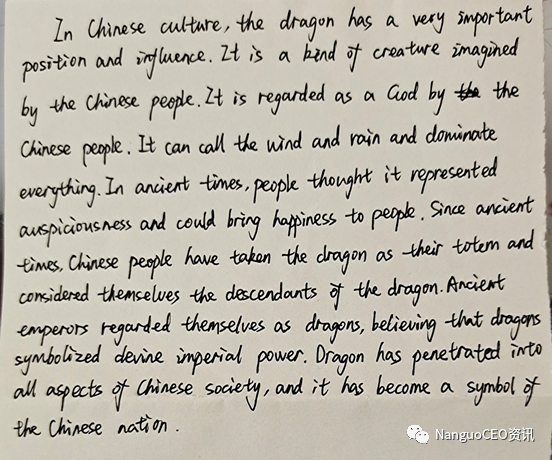 In Chinese culture, the dragon has a very important
position and influence. It is a kind of creature imagined
by the Chinese people. It is regarded as a God by the the
Chinese people. It can call the wind and rain and dominate
everything. In ancient times, people thought it represented
auspiciousness and could bring happiness to people. Since ancient
times, Chinese people have taken the dragon as their totem and
considered themselves the descendants of the dragon. Ancient
emperors regarded themselves as dragons, believing that dragons
symbolized devine imperial power. Dragon has penetrated into
all aspects of Chinese society, and it has become a symbol of
the Chinese nation.
NanguoCEO资讯